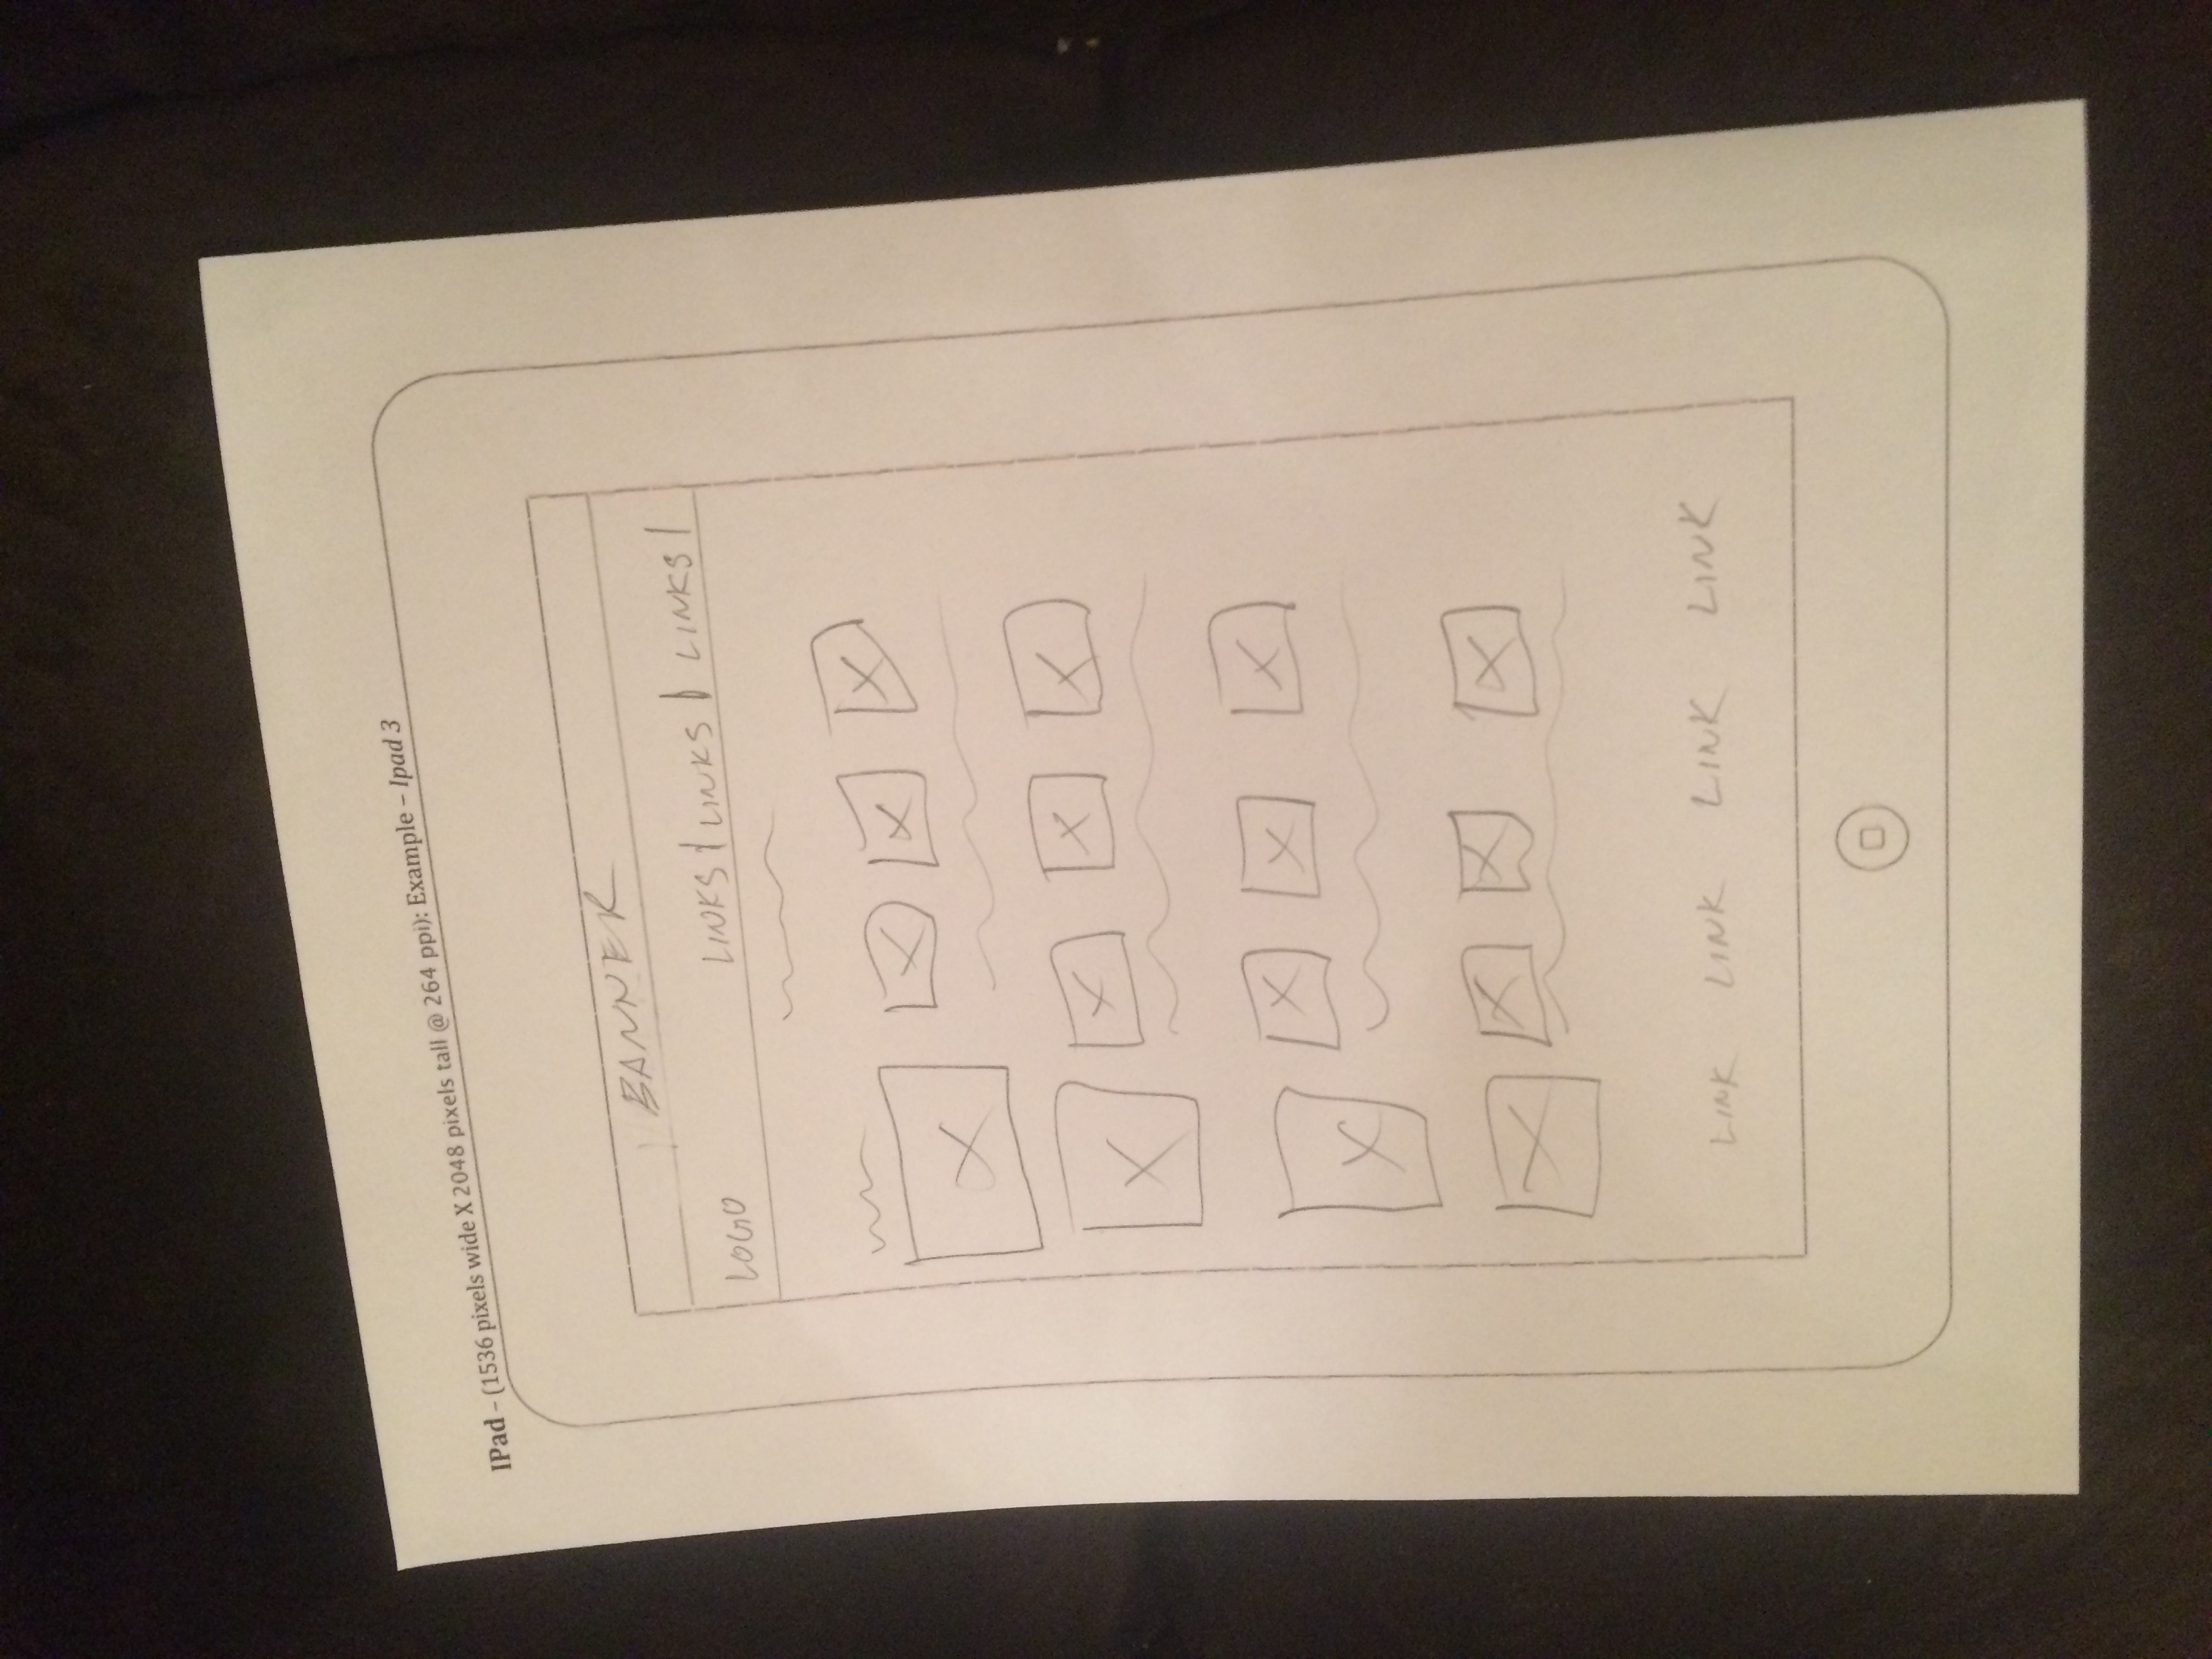 IPad – (1536 pixels wide X 2048 pixels tall @ 264 ppi): Example – Ipad 3
BANNER
LOGO LINKS | LINKS | LINKS |
LINK LINK LINK LINK